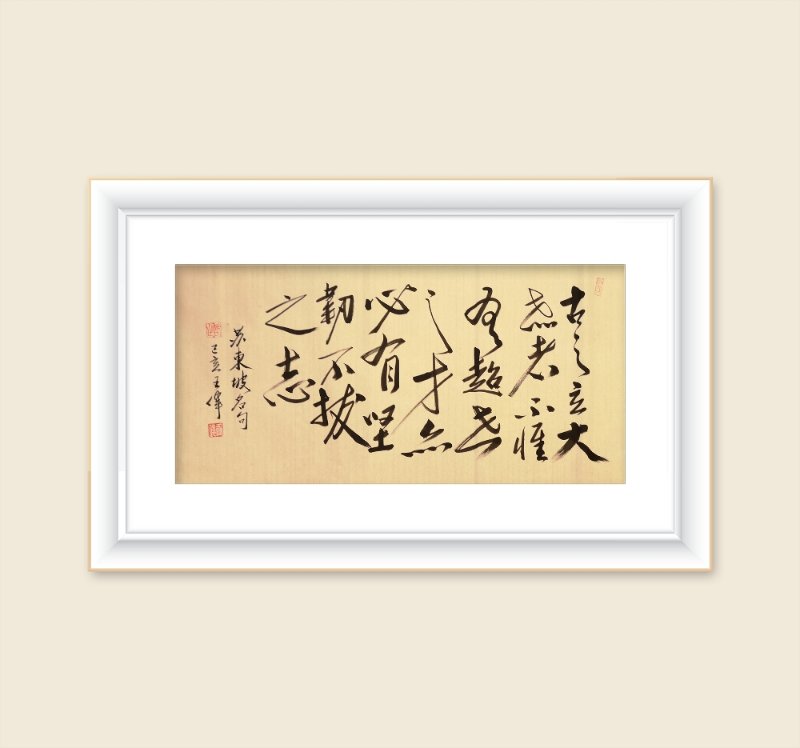 古之立大
志者不惟
有超世
之才亦
必有坚
韧不拔
之志
苏東坡名句
己亥王偉